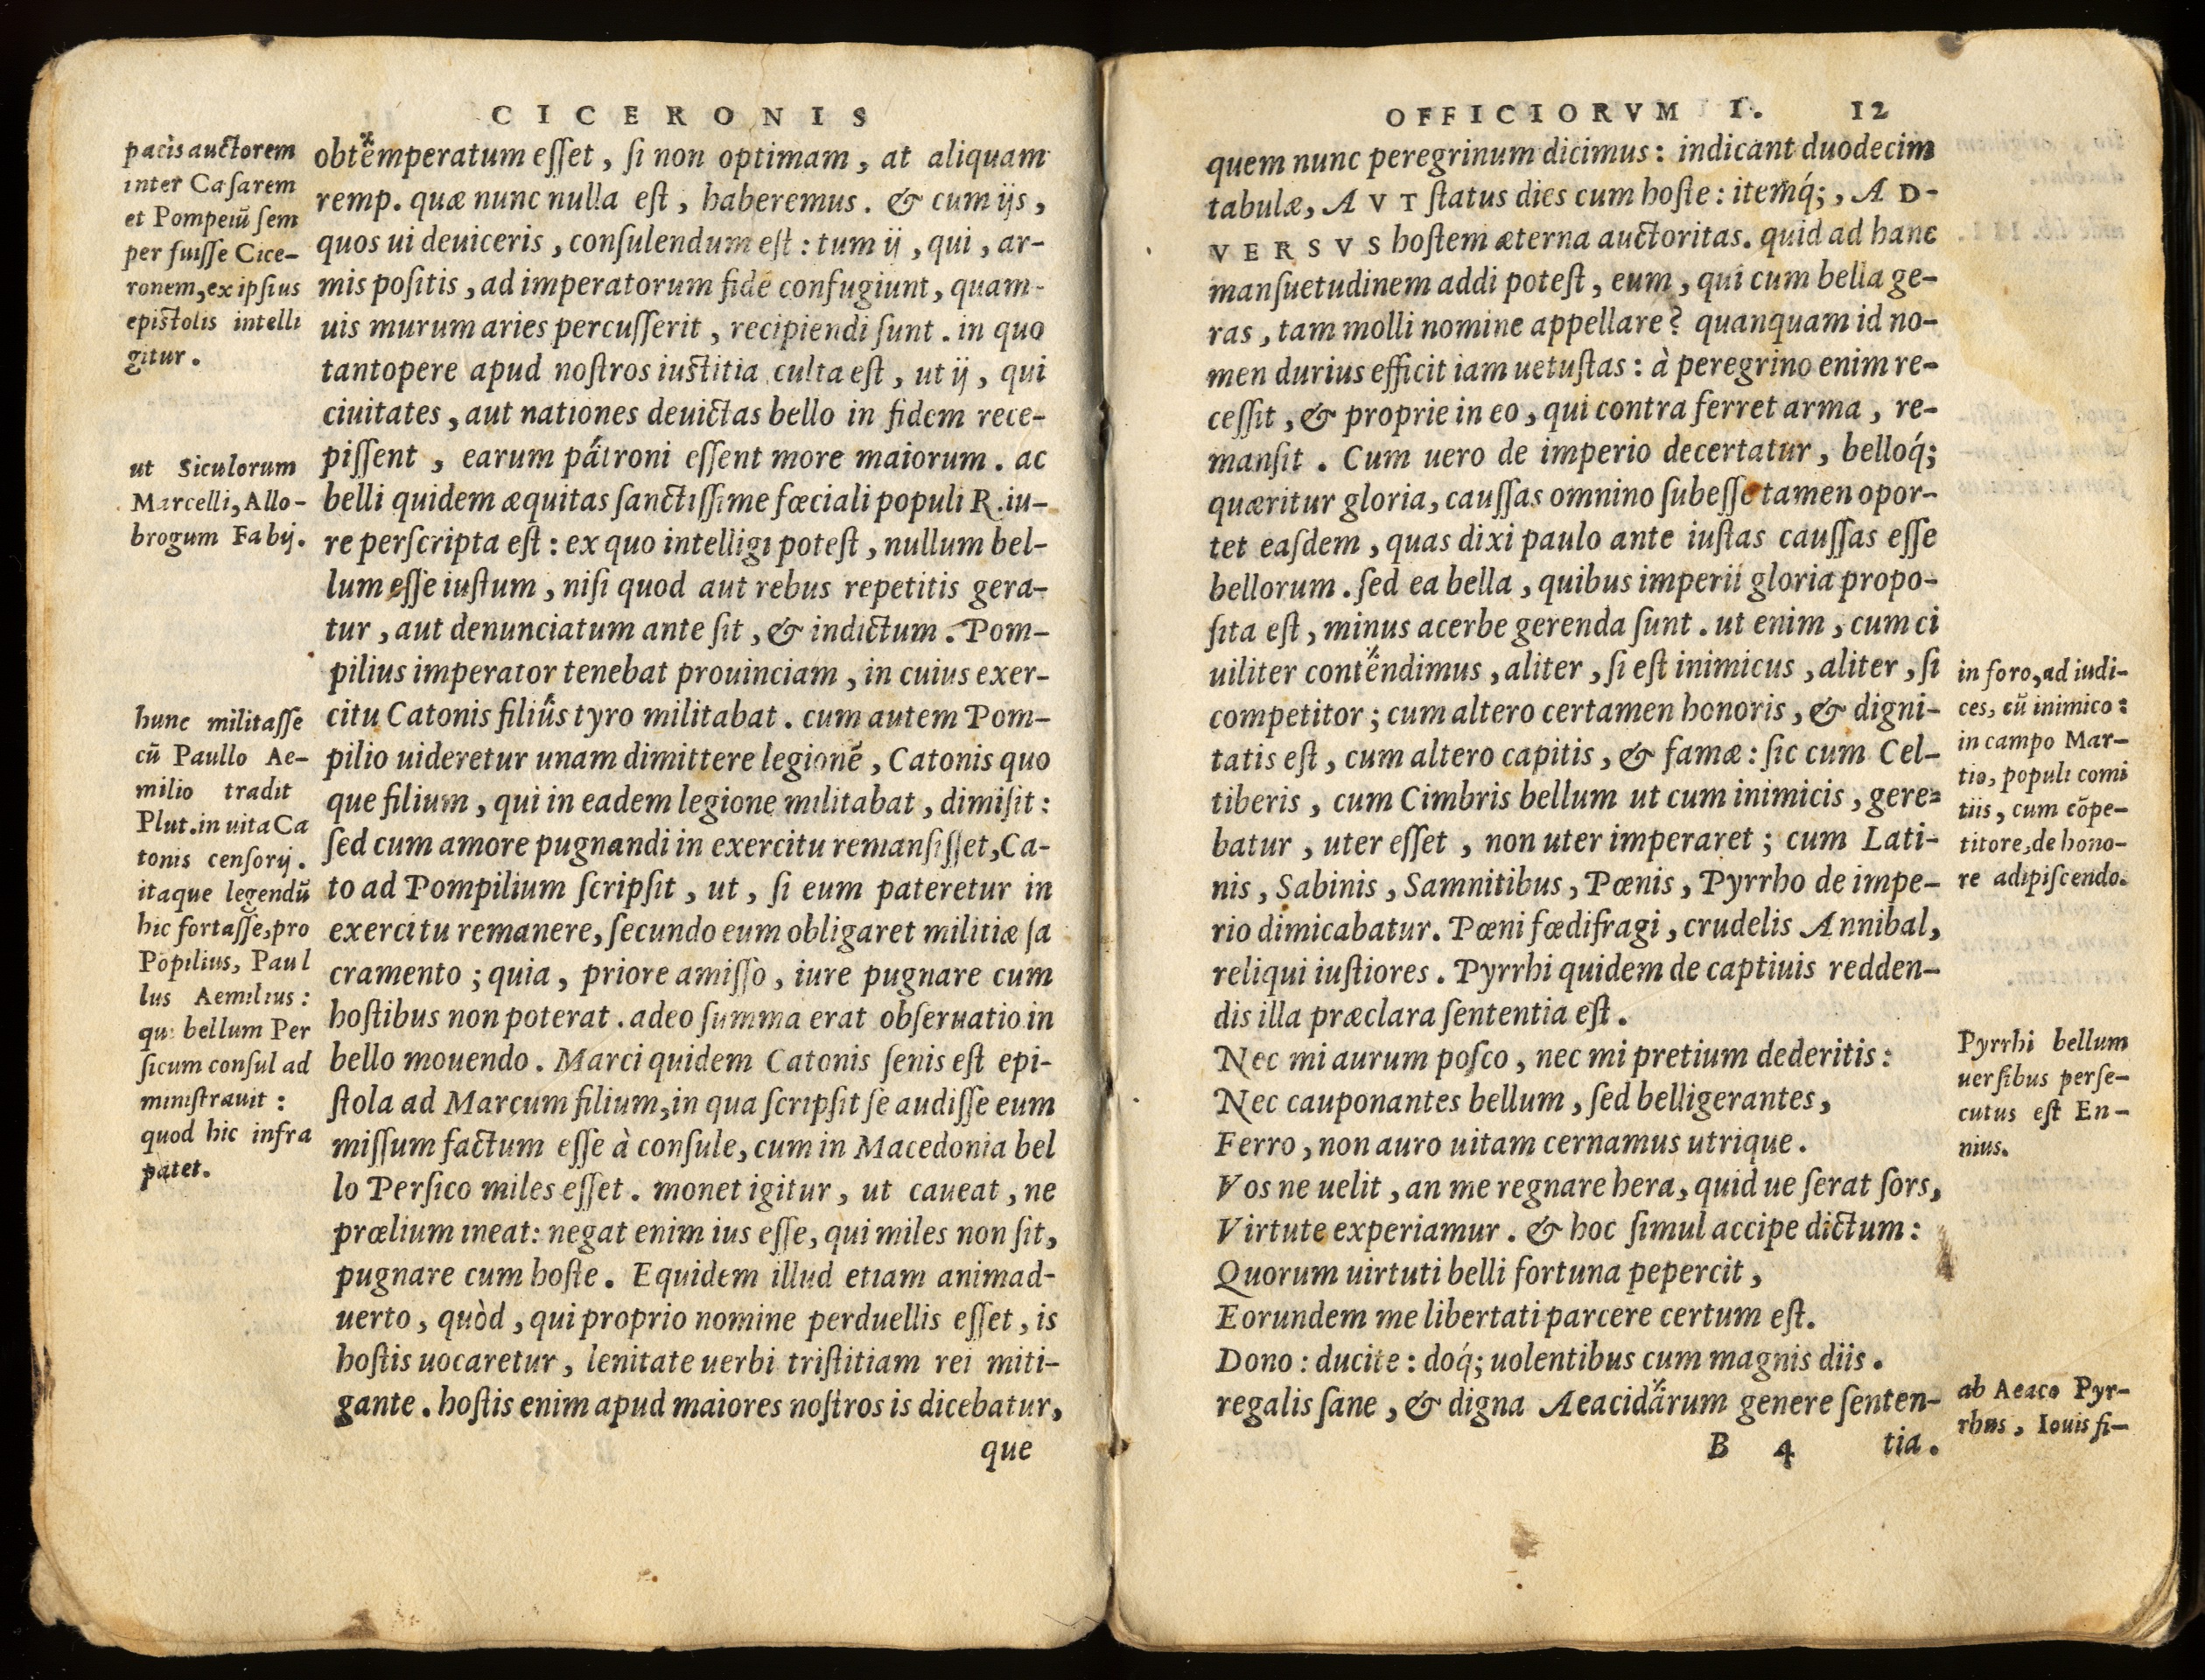 CICERONIS
pacis auctorem
inter Cæsarem
et Pompeiũ sem
per fuisse Cice-
ronem, ex ipsius
epistolis intelli
gitur.
ut Siculorum
Marcelli, Allo-
brogum Fabij.
hunc militasse
cũ Paullo Ae-
milio tradit
Plut. in uita Ca
tonis censorij.
itaque legendũ
hic fortasse, pro
Popilius, Paul
lus Aemilius:
qui bellum Per
sicum consul ad
ministrauit:
quod hic infra
patet.
obtẽmperatum eſſet, ſi non optimam, at aliquam
remp. quæ nunc nulla eſt, haberemus. & cum ijs,
quos ui deuiceris, conſulendum eſt: tum ij, qui, ar-
mis poſitis, ad imperatorum fidẽ confugiunt, quam-
uis murum aries percuſſerit, recipiendi ſunt. in quo
tantopere apud noſtros iuſtitia culta eſt, ut ij, qui
ciuitates, aut nationes deuictas bello in fidem rece-
piſſent, earum patroni eſſent more maiorum. ac
belli quidem æquitas ſanctiſſime fœciali populi R. iu-
re perſcripta eſt: ex quo intelligi poteſt, nullum bel-
lum eſſe iuſtum, niſi quod aut rebus repetitis gera-
tur, aut denunciatum ante ſit, & indictum. Pom-
pilius imperator tenebat prouinciam, in cuius exer-
citu Catonis filius tyro militabat. cum autem Pom-
pilio uideretur unam dimittere legionẽ, Catonis quo
que filium, qui in eadem legione militabat, dimiſit:
ſed cum amore pugnandi in exercitu remanſiſſet, Ca-
to ad Pompilium ſcripſit, ut, ſi eum pateretur in
exercitu remanere, ſecundo eum obligaret militiæ ſa
cramento; quia, priore amiſſo, iure pugnare cum
hoſtibus non poterat. adeo ſumma erat obſeruatio in
bello mouendo. Marci quidem Catonis ſenis eſt epi-
ſtola ad Marcum filium, in qua ſcripſit ſe audiſſe eum
miſſum factum eſſe à conſule, cum in Macedonia bel
lo Perſico miles eſſet. monet igitur, ut caueat, ne
prœlium ineat: negat enim ius eſſe, qui miles non ſit,
pugnare cum hoſte. Equidem illud etiam animad-
uerto, quòd, qui proprio nomine perduellis eſſet, is
hoſtis uocaretur, lenitate uerbi triſtitiam rei miti-
gante. hoſtis enim apud maiores noſtros is dicebatur,
que
OFFICIORVM I. 12
quem nunc peregrinum dicimus: indicant duodecim
tabulæ, AVT ſtatus dies cum hoſte: itemq́;, AD-
VERSVS hoſtem æterna auctoritas. quid ad hanc
manſuetudinem addi poteſt, eum, qui cum bella ge-
ras, tam molli nomine appellare? quanquam id no-
men durius efficit iam uetuſtas: à peregrino enim re-
ceſſit, & proprie in eo, qui contra ferret arma, re-
manſit. Cum uero de imperio decertatur, belloq́;
quæritur gloria, cauſſas omnino ſubeſſe tamen opor-
tet eaſdem, quas dixi paulo ante iuſtas cauſſas eſſe
bellorum. ſed ea bella, quibus imperii gloria propo-
ſita eſt, minus acerbe gerenda ſunt. ut enim, cum ci
uiliter contendimus, aliter, ſi eſt inimicus, aliter, ſi
competitor; cum altero certamen honoris, & digni-
tatis eſt, cum altero capitis, & famæ: ſic cum Cel-
tiberis, cum Cimbris bellum ut cum inimicis, gere-
batur, uter eſſet, non uter imperaret; cum Lati-
nis, Sabinis, Samnitibus, Pœnis, Pyrrho de impe-
rio dimicabatur. Pœni fœdifragi, crudelis Annibal,
reliqui iuſtiores. Pyrrhi quidem de captiuis redden-
dis illa præclara ſententia eſt.
Nec mi aurum poſco, nec mi pretium dederitis:
Nec cauponantes bellum, ſed belligerantes,
Ferro, non auro uitam cernamus utrique.
Vos ne uelit, an me regnare hera, quid ue ferat ſors,
Virtute experiamur. & hoc ſimul accipe dictum:
Quorum uirtuti belli fortuna pepercit,
Eorundem me libertati parcere certum eſt.
Dono: ducite: doq́; uolentibus cum magnis diis.
regalis ſane, & digna Aeacidarum genere ſenten-
B 4 tia.
in foro, ad iudi-
ces, cũ inimico:
in campo Mar-
tio, populi comi
tiis, cum cõpe-
titore, de hono-
re adipiscendo.
Pyrrhi bellum
uersibus perse-
cutus est En-
nius.
ab Aeaco Pyr-
rhus, Iouis fi-